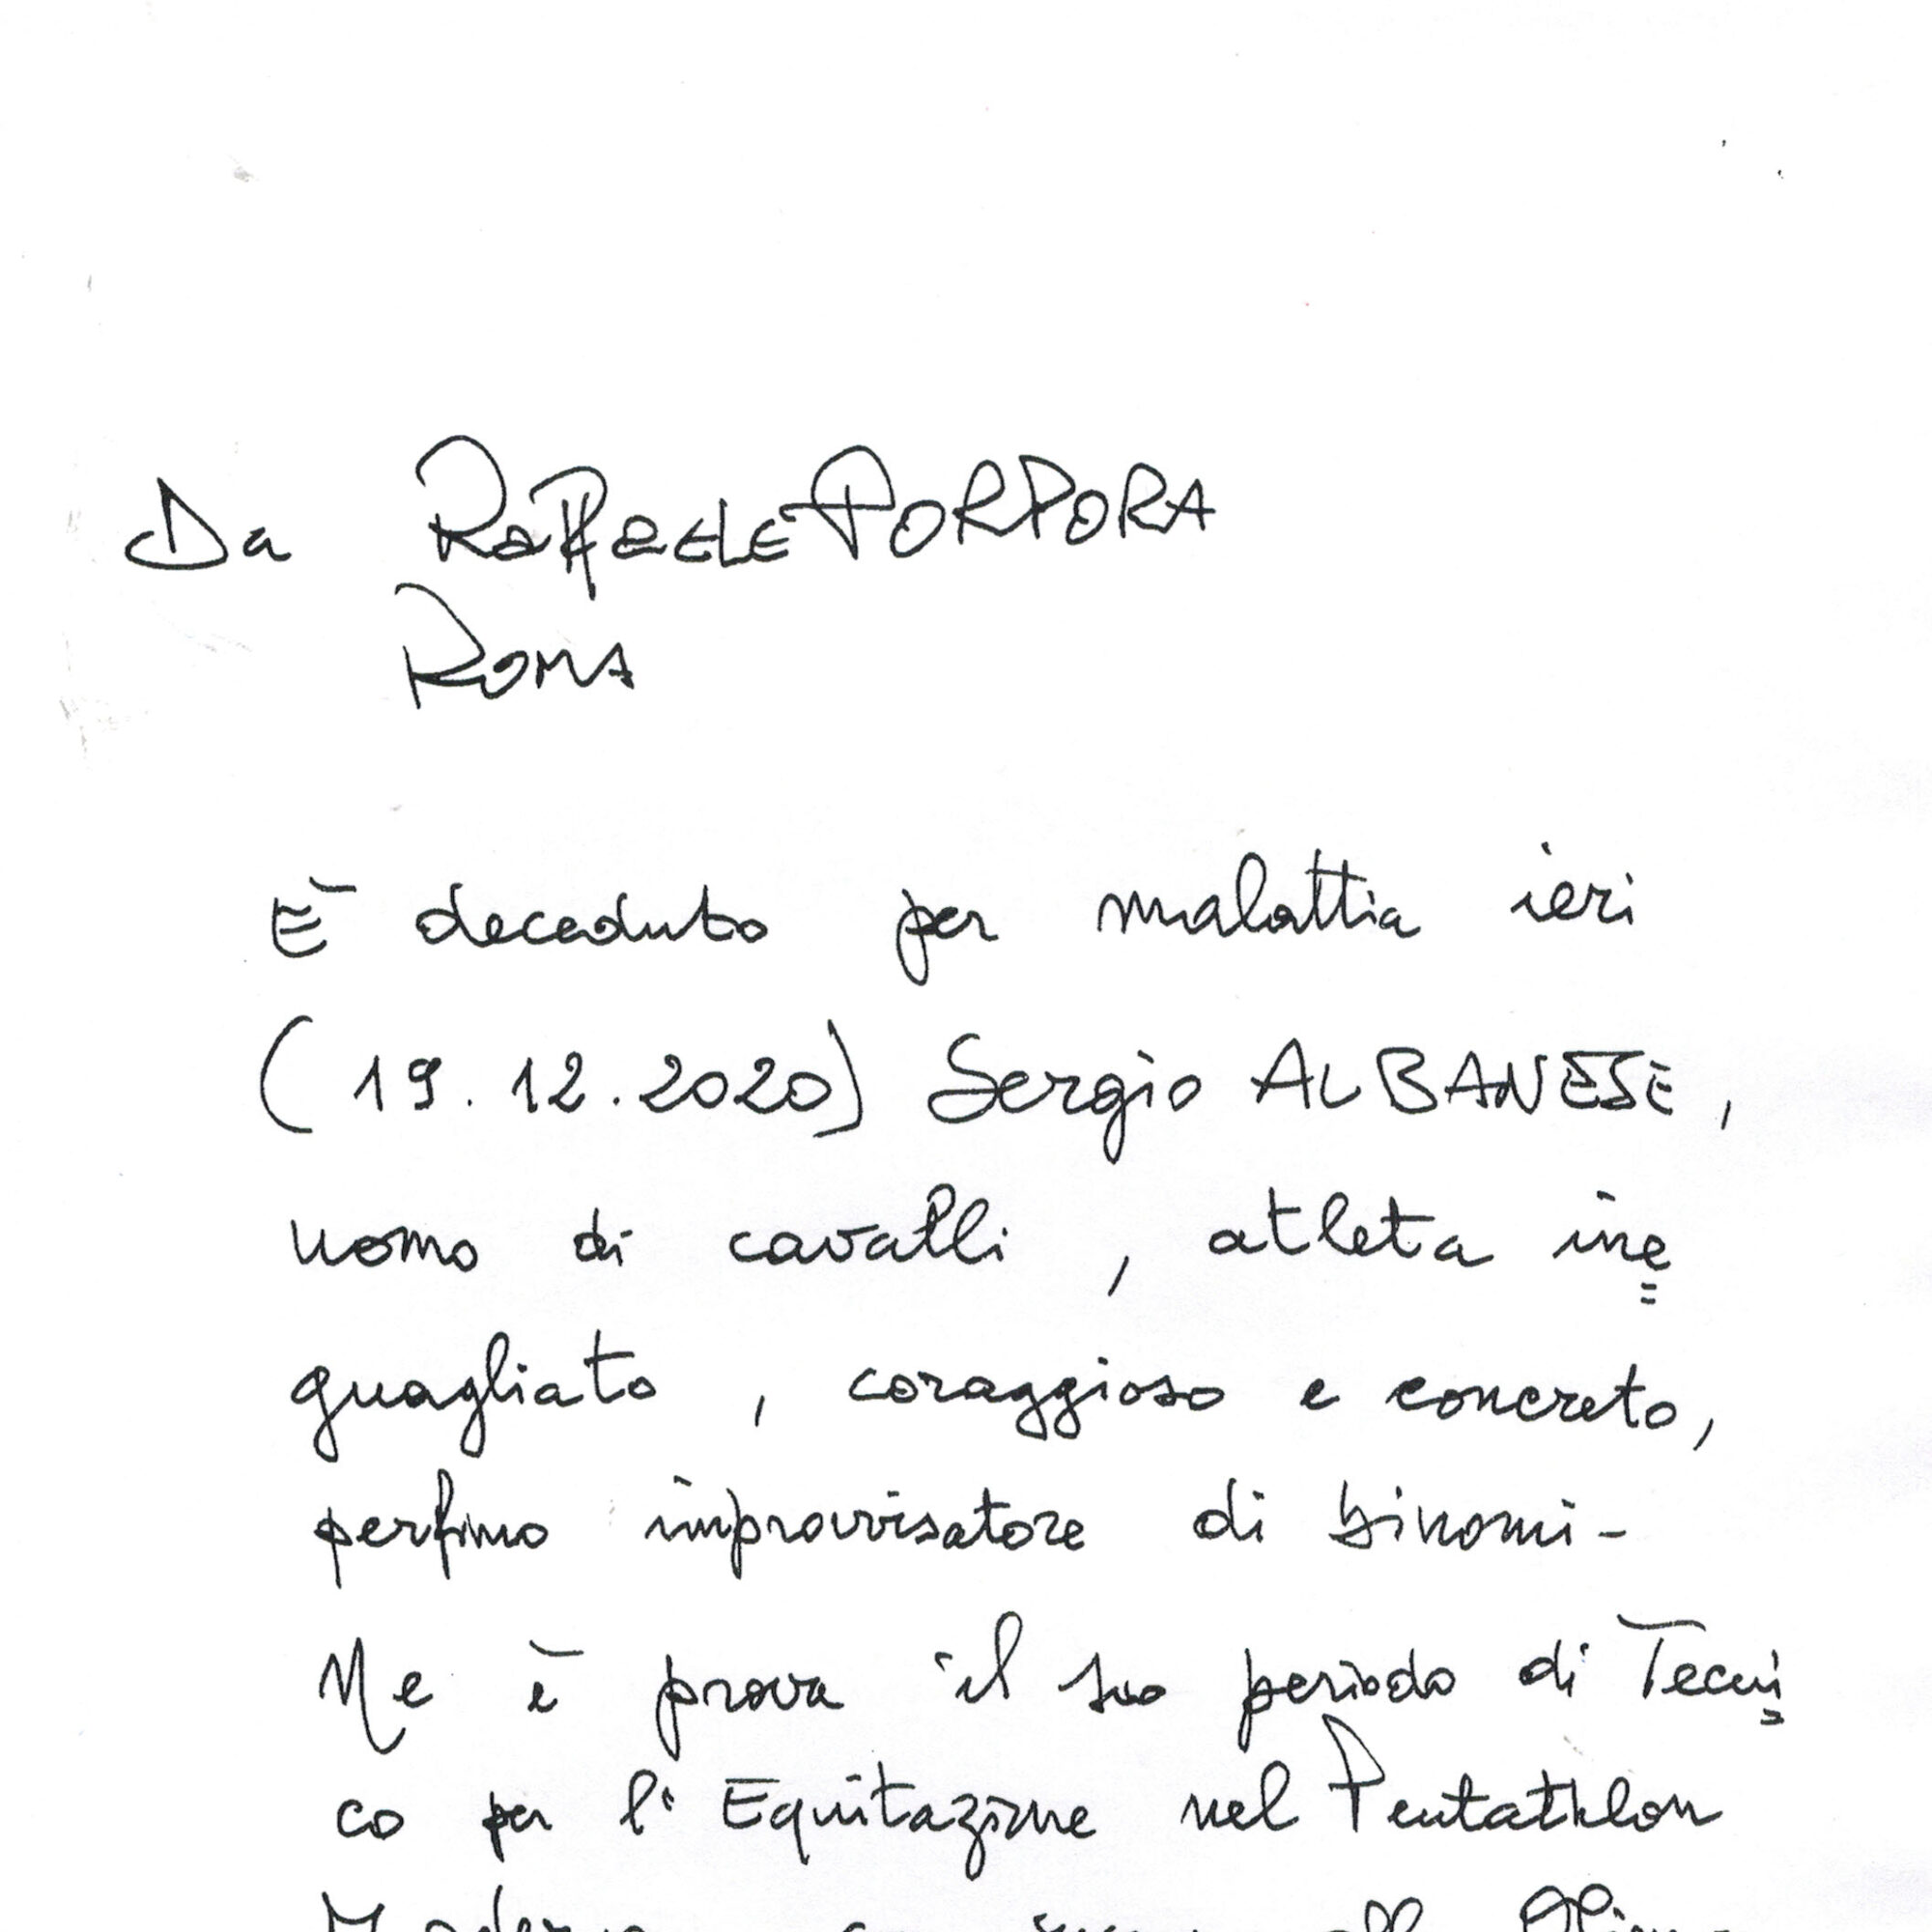 Da RAFFAELE PORPORA
ROMA
È deceduto per malattia ieri
(19.12.2020) Sergio ALBANESE,
uomo di cavalli, atleta ine=
guagliato, coraggioso e concreto,
perfino improvvisatore di binomi-
Ne è prova il suo periodo di Tecni=
co per l'Equitazione nel Pentathlon